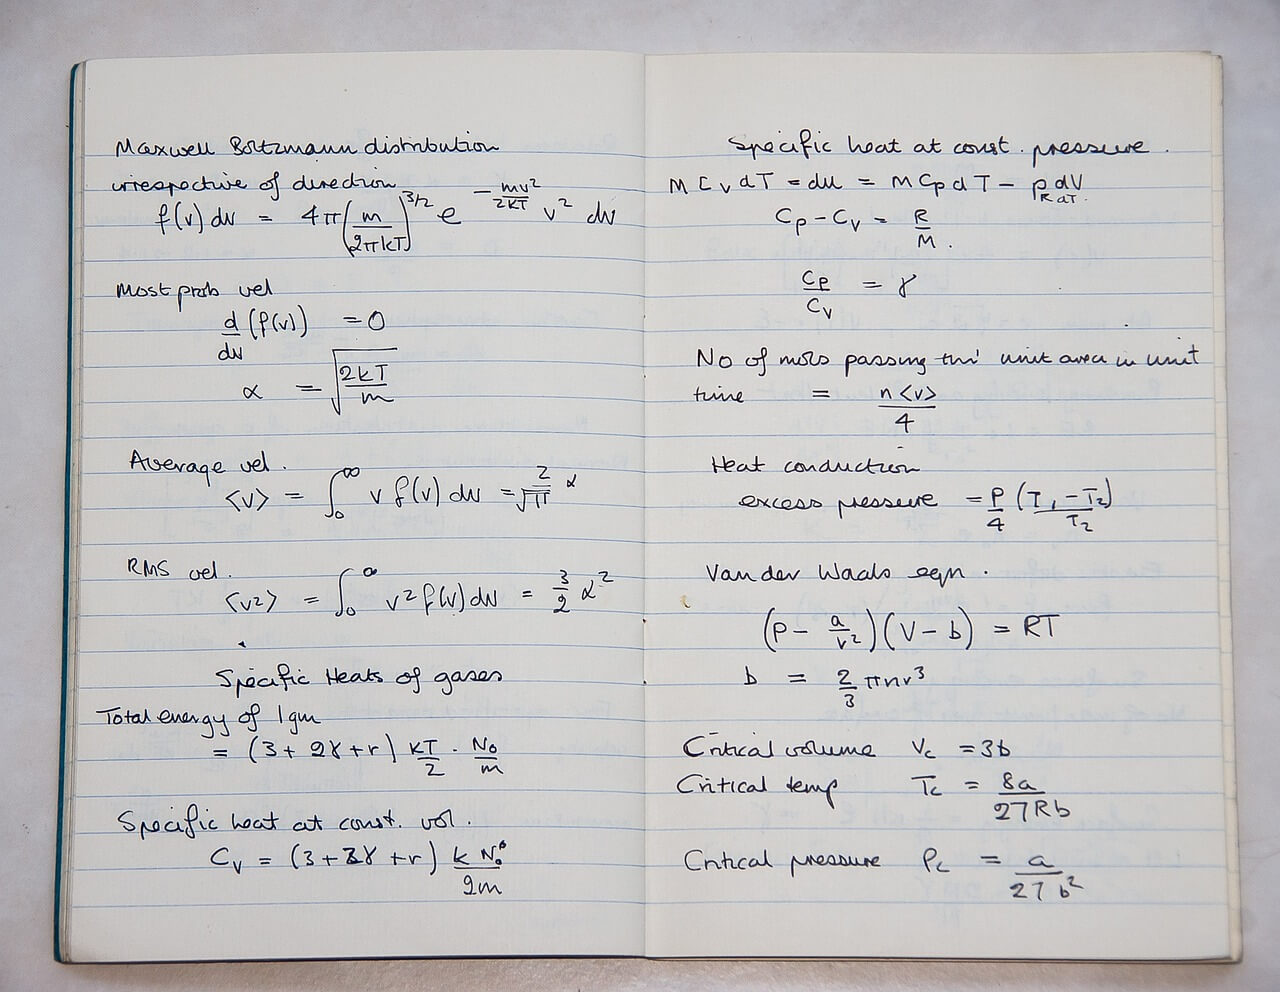 Maxwell Boltzmann distribution
irrespective of direction
f(v) dv = 4π (m/2πkT)^3/2 e^-mv²/2KT v² dv
Most prob vel
d/dv (f(v)) = 0
α = √(2kT/m)
Average vel.
<v> = ∫₀^∞ v f(v) dv = 2/√π α
RMS vel.
<v²> = ∫₀^∞ v² f(v) dv = 3/2 α²
Specific Heats of gases
Total energy of 1gm
= (3 + 2γ + r) kT/2 . N₀/m
Specific heat at const. vol.
Cv = (3 + 2γ + r) k N₀/2m
Specific heat at const. pressure.
M Cv dT = du = M Cp dT - p dV
R dT.
Cp - Cv = R/M.
Cp/Cv = γ
No of mols passing thro' unit area in unit
time = n<v>/4
Heat conduction
excess pressure = P/4 (T₁ - T₂)/T₂
Van der Waals eqn.
(P - a/v²)(V - b) = RT
b = 2/3 πnr³
Critical volume Vc = 3b
Critical temp Tc = 8a/27Rb
Critical pressure Pc = a/27b²